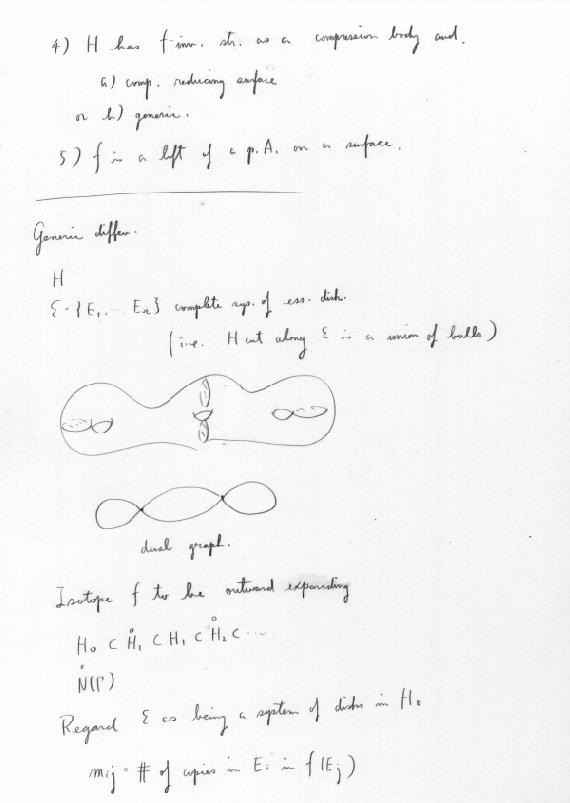 4) H has f inv. str. as a compression body and.
a) comp. reducing surface
or b) generic.
5) f is a lift of a p.A. on a surface.
Generic diffeo.
H
Ɛ = {E₁, ... Eₙ} complete sys. of ess. disk.
(i.e. H cut along Ɛ is a union of balls)
dual graph.
Isotope f to be outward expanding
H₀ ⊂ H̊₁ ⊂ H₁ ⊂ H̊₂ ⊂ ...
N(Γ)
Regard Ɛ as being a system of disks in H₀
mᵢⱼ = # of copies in Eᵢ in f(Eⱼ)